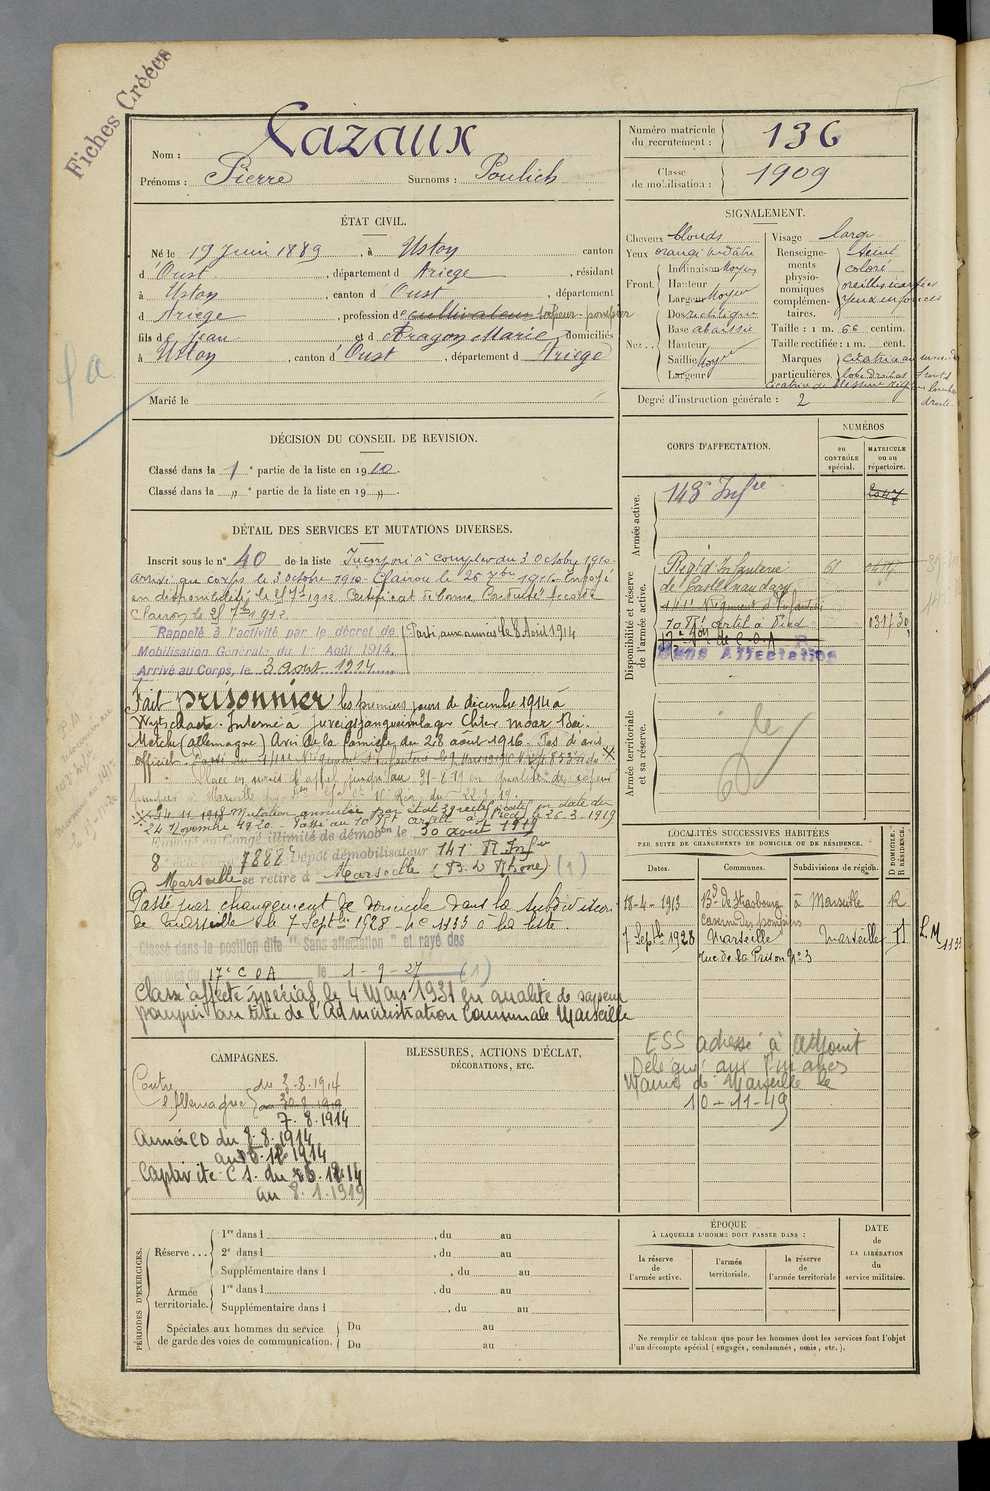 Fiches Créées
Nom : Cazaux
Prénoms : Pierre Surnoms : Poulich
Numéro matricule du recrutement : 136
Classe de mobilisation : 1909
ÉTAT CIVIL.
Né le 19 Juin 1889, à Ustou canton
d'Oust, département d Ariège, résidant
à Ustou, canton d'Oust, département
d Ariège, profession de cultivateur sapeur-pompier
fils de Jean et d Aragon Marie domiciliés
à Ustou, canton d'Oust, département d Ariège
Marié le
SIGNALEMENT.
Cheveux blonds
Yeux orangé verdâtre
Front. Inclinaison Moyen
Hauteur
Largeur Moyen
Nez... Dos rectiligne
Base abaissée
Hauteur
Saillie Moyen
Largeur
Visage large
Renseignements physionomiques complémentaires. teint
coloré
oreilles écartées
yeux enfoncés
Taille : 1 m. 66 centim.
Taille rectifiée : 1 m. cent.
Marques particulières.
Degré d'instruction générale : 2
DÉCISION DU CONSEIL DE REVISION.
Classé dans la 1e partie de la liste en 1910.
Classé dans la „ e partie de la liste en 19 „ .
DÉTAIL DES SERVICES ET MUTATIONS DIVERSES.
Inscrit sous le n° 40 de la liste Incorporé à compter du 3 Octobre 1910
arrivé au corps le 3 octobre 1910. Clairon le 26 7bre 1911. Envoyé
en disponibilité le 27 7bre 1912 Certificat de bonne Conduite accordé
Clairon le 27 7bre 1912
Rappelé à l'activité par le décret de
Mobilisation Générale du 1er Août 1914.
Arrivé au Corps, le 3 août 1914
Parti aux armées le 8 Août 1914
Fait prisonnier les premiers jours de décembre 1914 à
Wytschaete. Interné à
(Allemagne) Avis de la famille du 28 août 1916. Pas d'avis
officiel.
Placé en sursis d'appel jusqu'au 31-8-19 en qualité de sapeur
pompier à Marseille
Envoyé en Congé illimité de démobon le 30 août 1919
8 7888 Dépôt démobilisateur 141e R Infie
Marseille se retire à Marseille (B. d Rhône) (1)
Passé par changement de domicile dans la subdivision
de Marseille le 7 Septbre 1928 - N° 1133 à la liste.
Classé dans la position dite "Sans affectation" et rayé des
contrôles du 17e C O A le 1-9-27 (1)
Classé affecté spécial le 4 Mars 1931 en qualité de sapeur
pompier au titre de l'Administration Communale Marseille
CORPS D'AFFECTATION.
NUMÉROS
au CONTRÔLE spécial.
MATRICULE ou au répertoire.
Armée active.
143e Infie
2047
Disponibilité et réserve de l'armée active.
Régt d'Infanterie
de Castelnaudary
141e Régiment d'Infanterie
10 Rt Artil à Pied
17e Son de C.O.A
Sans Affectation
Armée territoriale et sa réserve.
LOCALITÉS SUCCESSIVES HABITÉES
PAR SUITE DE CHANGEMENTS DE DOMICILE OU DE RÉSIDENCE.
Dates. Communes. Subdivisions de région. D DOMICILE. R RÉSIDENCE.
18-4-1913 Bd de Strasbourg à Marseille R
caserne des pompiers
7 Septbre 1928 Marseille Marseille D
rue de la Prison N° 3
L.M 1133
ESS adressé à adjoint
Délégué aux Finances
Mairie de Marseille le
10-11-49
CAMPAGNES.
Contre l'Allemagne du 3-8-1914
au 30-8-1919
7.8.1914
Armée CD du 8.8.1914
Captivité CS. du
au 8.1.1919
BLESSURES, ACTIONS D'ÉCLAT,
DÉCORATIONS, ETC.
PÉRIODES D'EXERCICES.
Réserve... 1re dans l , du au
2e dans l , du au
Supplémentaire dans l , du au
Armée territoriale. 1re dans l , du au
Supplémentaire dans l , du au
Spéciales aux hommes du service de garde des voies de communication. Du au
Du au
ÉPOQUE
À LAQUELLE L'HOMME DOIT PASSER DANS :
la réserve de l'armée active.
l'armée territoriale.
la réserve de l'armée territoriale
DATE de LA LIBÉRATION du service militaire.
Ne remplir ce tableau que pour les hommes dont les services font l'objet
d'un décompte spécial (engagés, condamnés, omis, etc.).